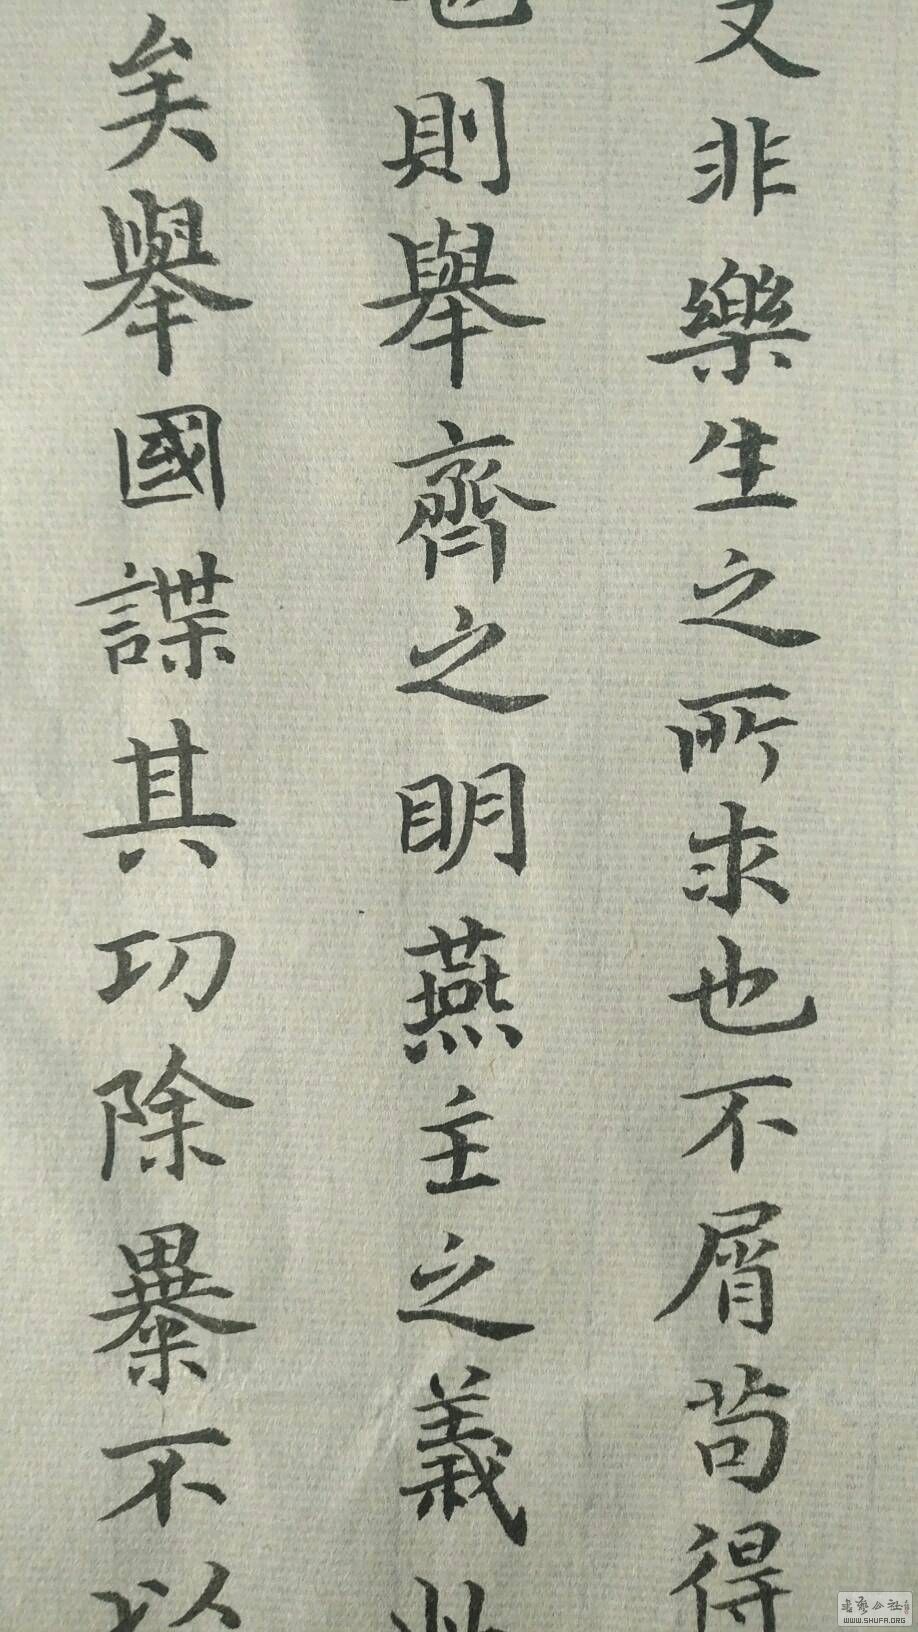 又非樂生之所求也不屑苟得
也則舉齊之明燕主之義此
矣舉國諜其功除暴不以
书艺公社
WWW.SHUFA.ORG